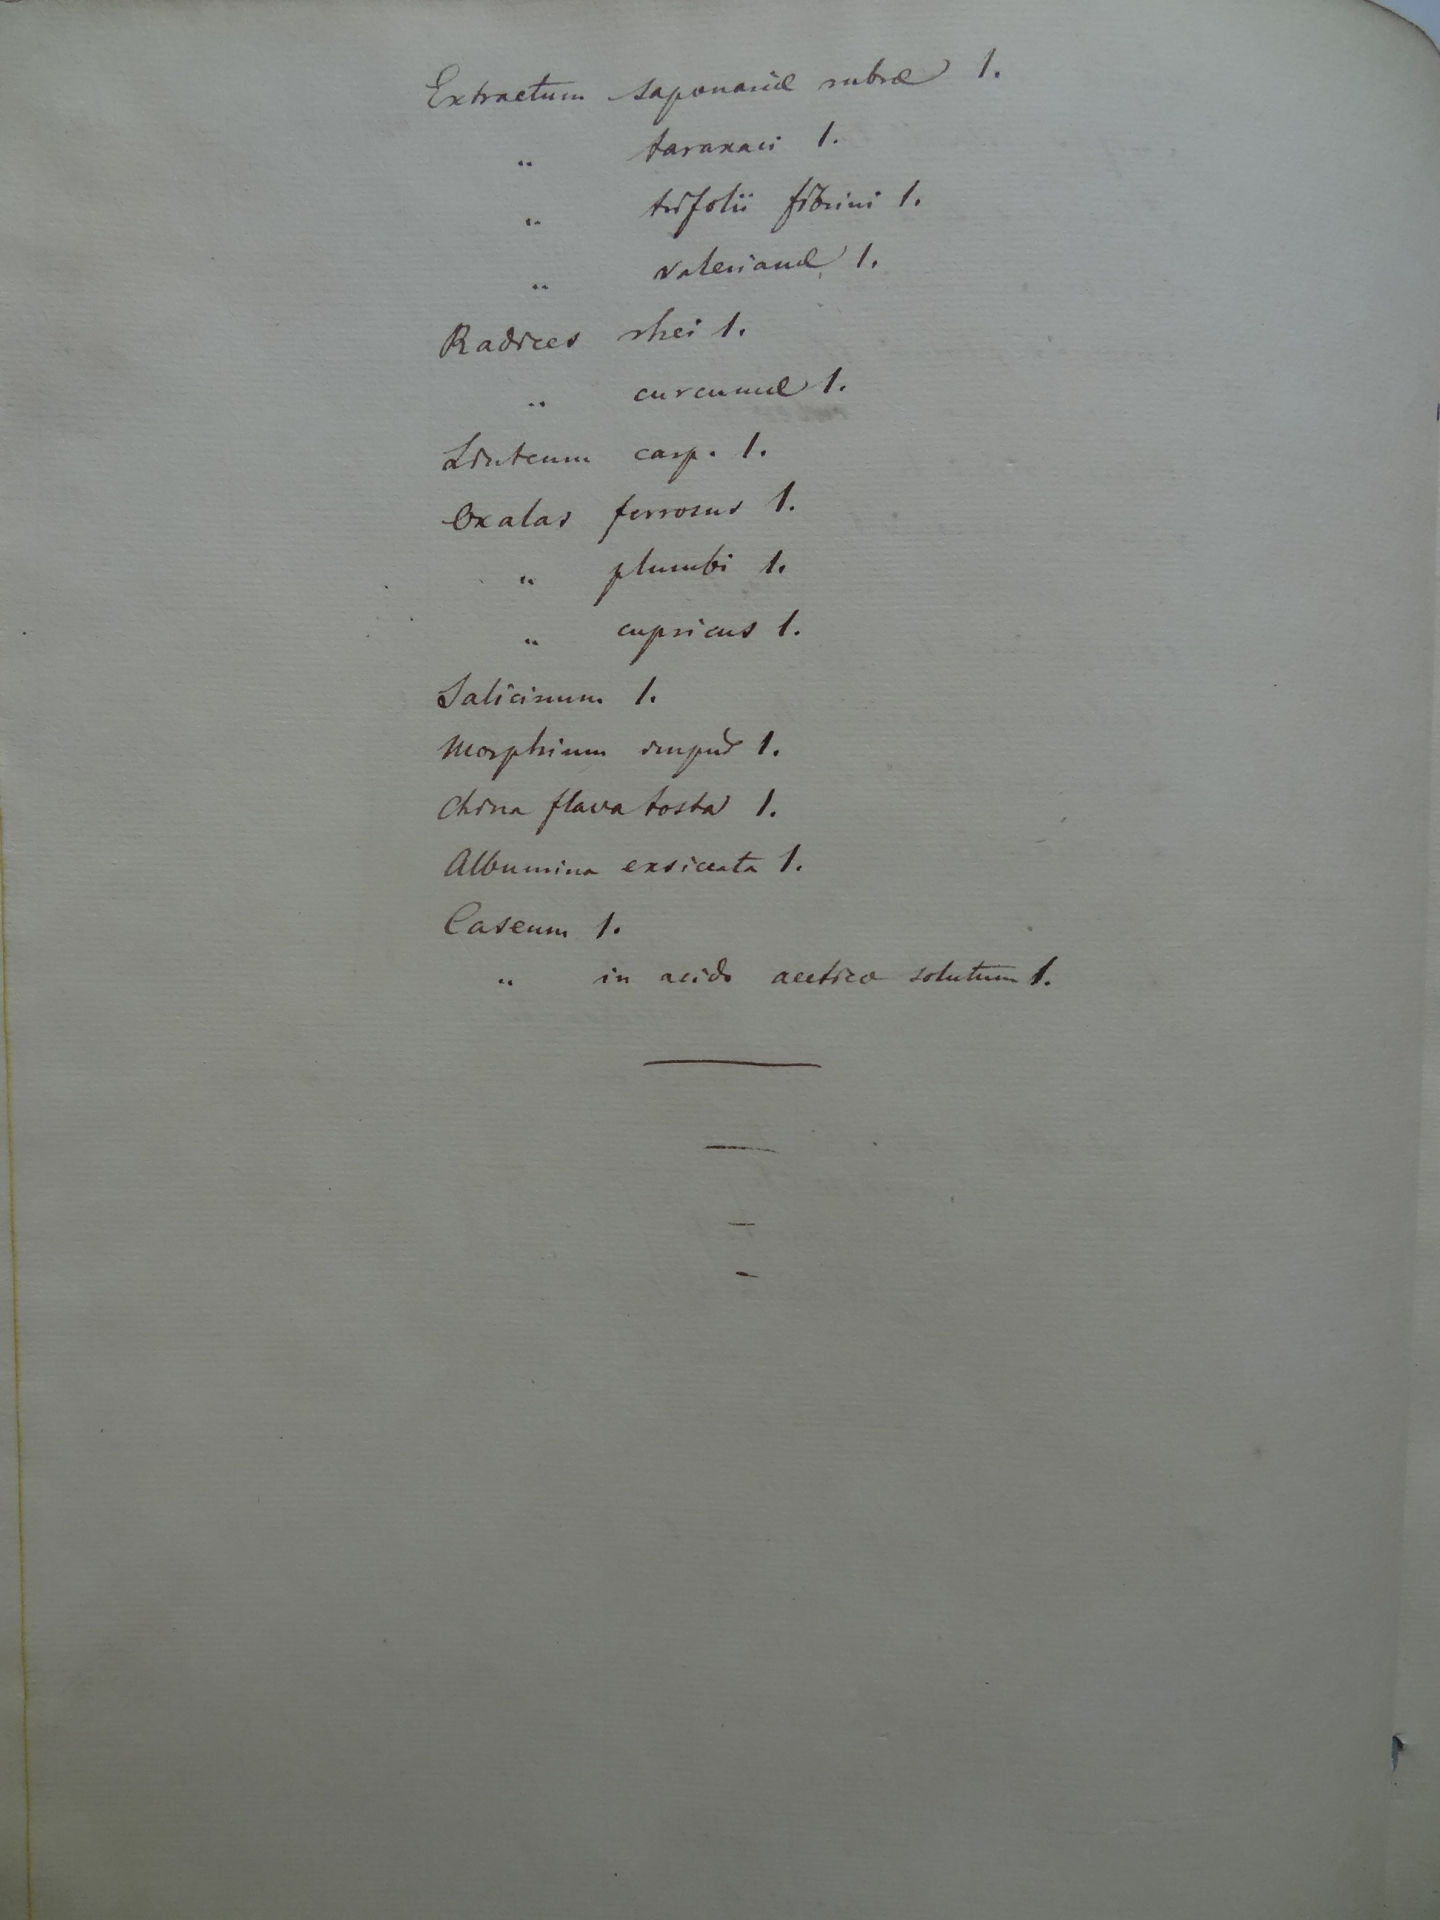 Extractum saponariæ rubræ 1.
" taraxaci 1.
" trifolii fibrini 1.
" valerianæ 1.
Radices rhei 1.
" curcumæ 1.
Linteum carp. 1.
Oxalas ferrosus 1.
" plumbi 1.
" cupricus 1.
Salicinum 1.
Morphium 1.
China flava tosta 1.
Albumina exsiccata 1.
Caseum 1.
" in acido acetico solutum 1.